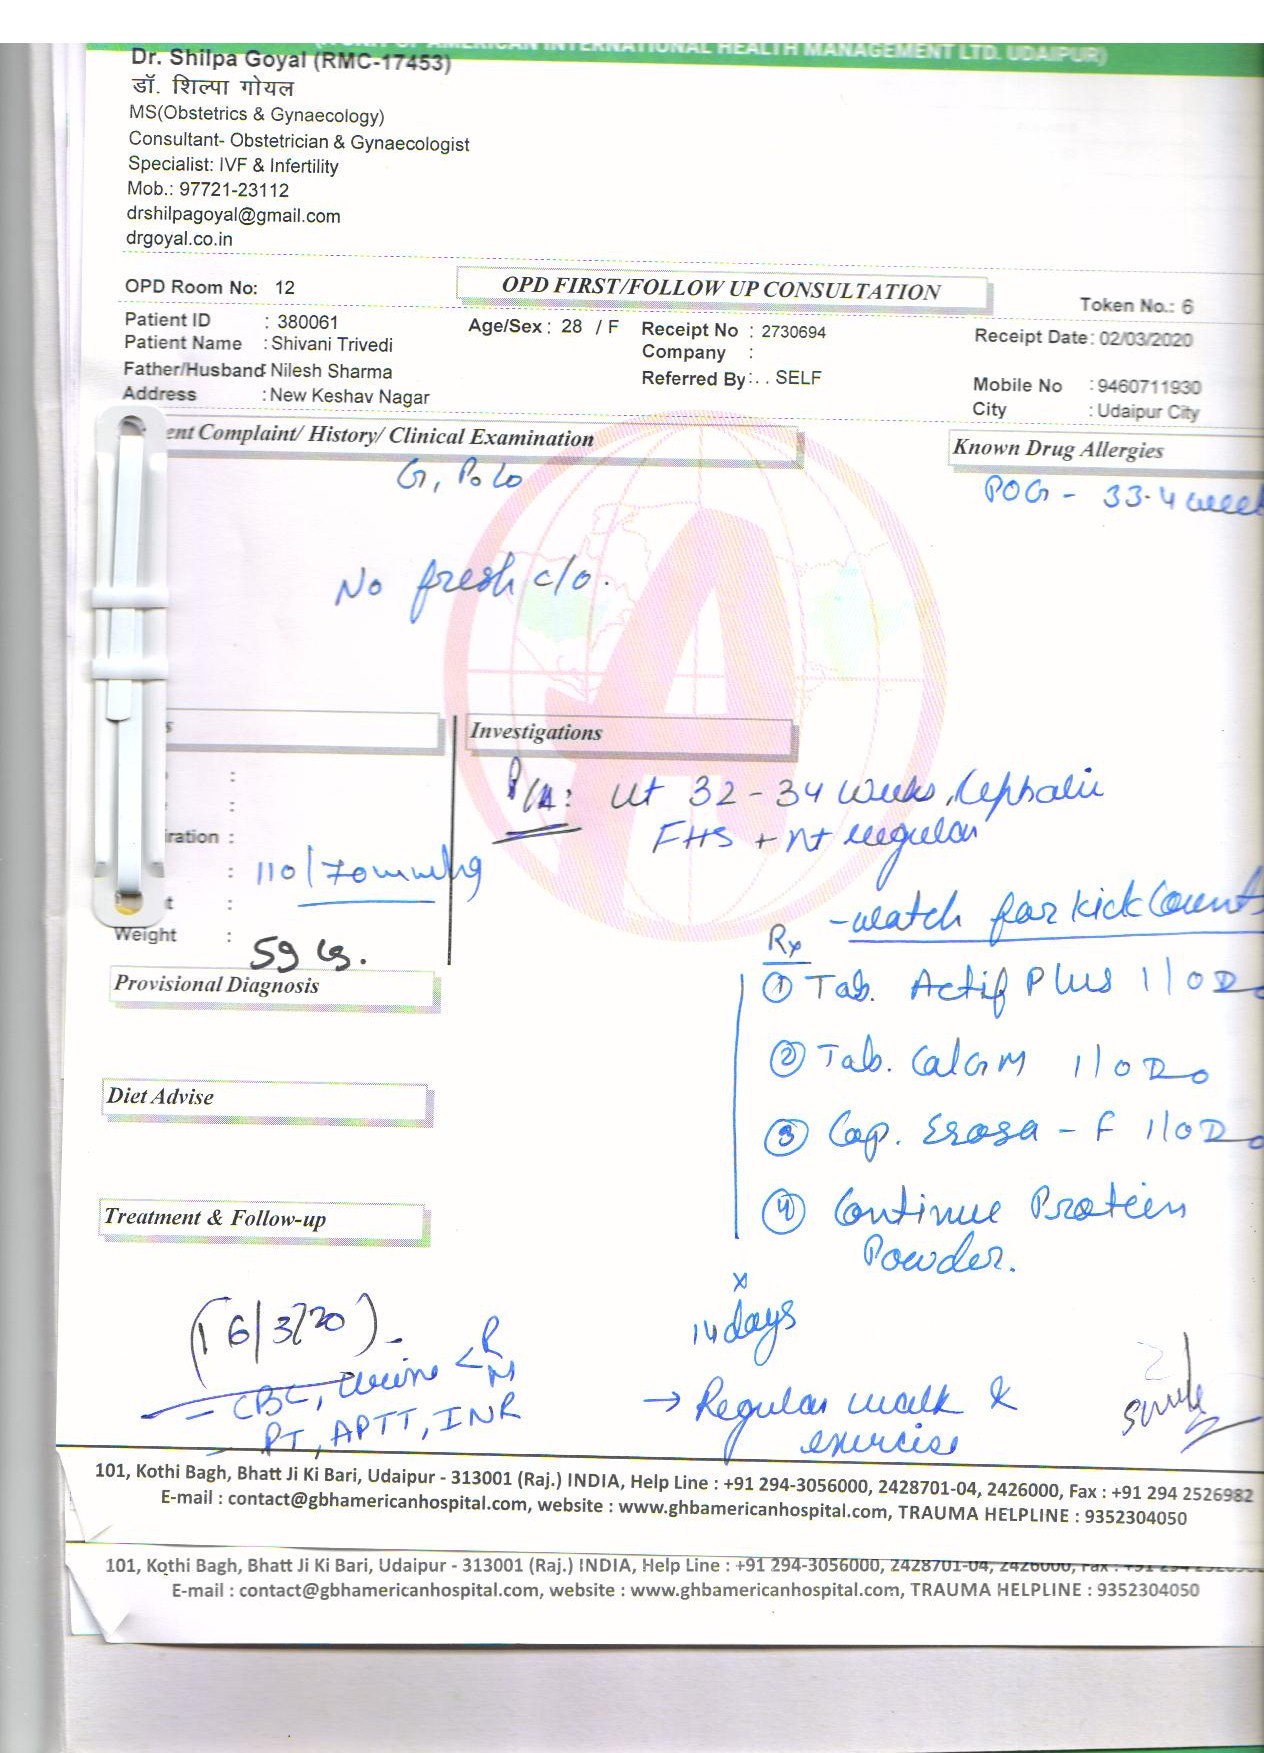 (A UNIT OF AMERICAN INTERNATIONAL HEALTH MANAGEMENT LTD. UDAIPUR)
Dr. Shilpa Goyal (RMC-17453)
डॉ. शिल्पा गोयल
MS(Obstetrics & Gynaecology)
Consultant- Obstetrician & Gynaecologist
Specialist: IVF & Infertility
Mob.: 97721-23112
drshilpagoyal@gmail.com
drgoyal.co.in
OPD Room No: 12
OPD FIRST/FOLLOW UP CONSULTATION
Token No.: 6
Patient ID : 380061 Age/Sex : 28 / F Receipt No : 2730694 Receipt Date: 02/03/2020
Patient Name : Shivani Trivedi Company :
Father/Husband: Nilesh Sharma Referred By: . . SELF Mobile No : 9460711930
Address : New Keshav Nagar City : Udaipur City
ent Complaint/ History/ Clinical Examination
Known Drug Allergies
G1 P0 L0
POG - 33.4 week
No fresh c/o.
s
Investigations
:
:
P/A: Ut 32-34 weeks, Cephalic
iration :
FHS + nt regular
: 110/70 mmhg
t :
- watch for kick Count
Weight : 59 kg.
Rx
Provisional Diagnosis
① Tab. Actif Plus 1 OD
② Tab. CalGM 1 OD
Diet Advise
③ Cap. Erosa - F 1 OD
Treatment & Follow-up
④ Continue Protein
Powder.
x
14 days
(16/3/20) -
- CBC, Urine < R
M
- PT, APTT, INR
→ Regular walk &
exercise
101, Kothi Bagh, Bhatt Ji Ki Bari, Udaipur - 313001 (Raj.) INDIA, Help Line : +91 294-3056000, 2428701-04, 2426000, Fax : +91 294 2526982
E-mail : contact@gbhamericanhospital.com, website : www.ghbamericanhospital.com, TRAUMA HELPLINE : 9352304050
101, Kothi Bagh, Bhatt Ji Ki Bari, Udaipur - 313001 (Raj.) INDIA, Help Line : +91 294-3056000, 2428701-04, 2426000, Fax : +91 294
E-mail : contact@gbhamericanhospital.com, website : www.ghbamericanhospital.com, TRAUMA HELPLINE : 9352304050